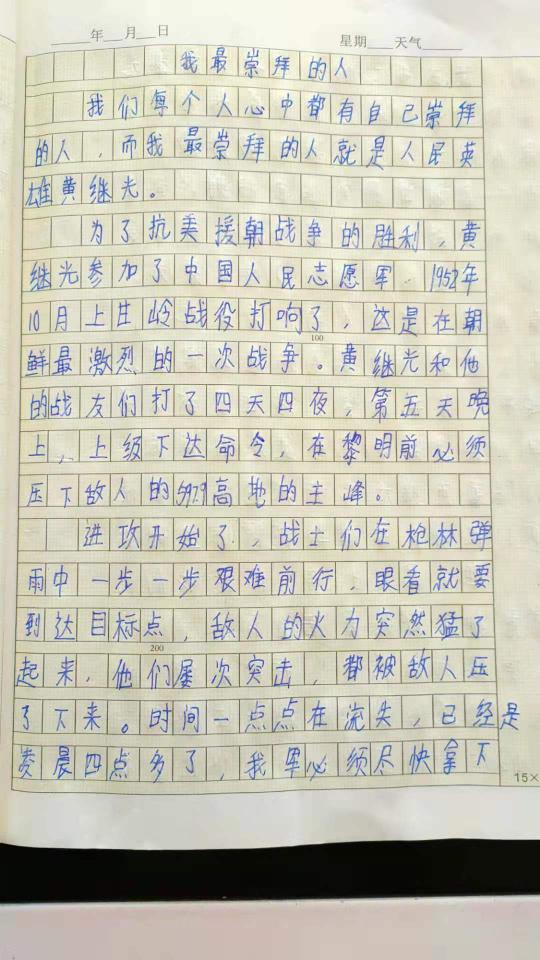 年 月 日 星期 天气
我最崇拜的人
我们每个人心中都有自己崇拜
的人，而我最崇拜的人就是人民英
雄黄继光。
为了抗美援朝战争的胜利，黄
继光参加了中国人民志愿军．1952年
10月上甘岭战役打响了，这是在朝
100
鲜最激烈的一次战争。黄继光和他
的战友们打了四天四夜，第五天晚
上，上级下达命令，在黎明前必须
压下敌人的597.9高地的主峰。
进攻开始了，战士们在枪林弹
雨中一步一步艰难前行，眼看就要
到达目标点，敌人的火力突然猛了
200
起来，他们屡次突击，都被敌人压
了下来。时间一点点在流失，已经是
凌晨四点多了，我军必须尽快拿下
15×